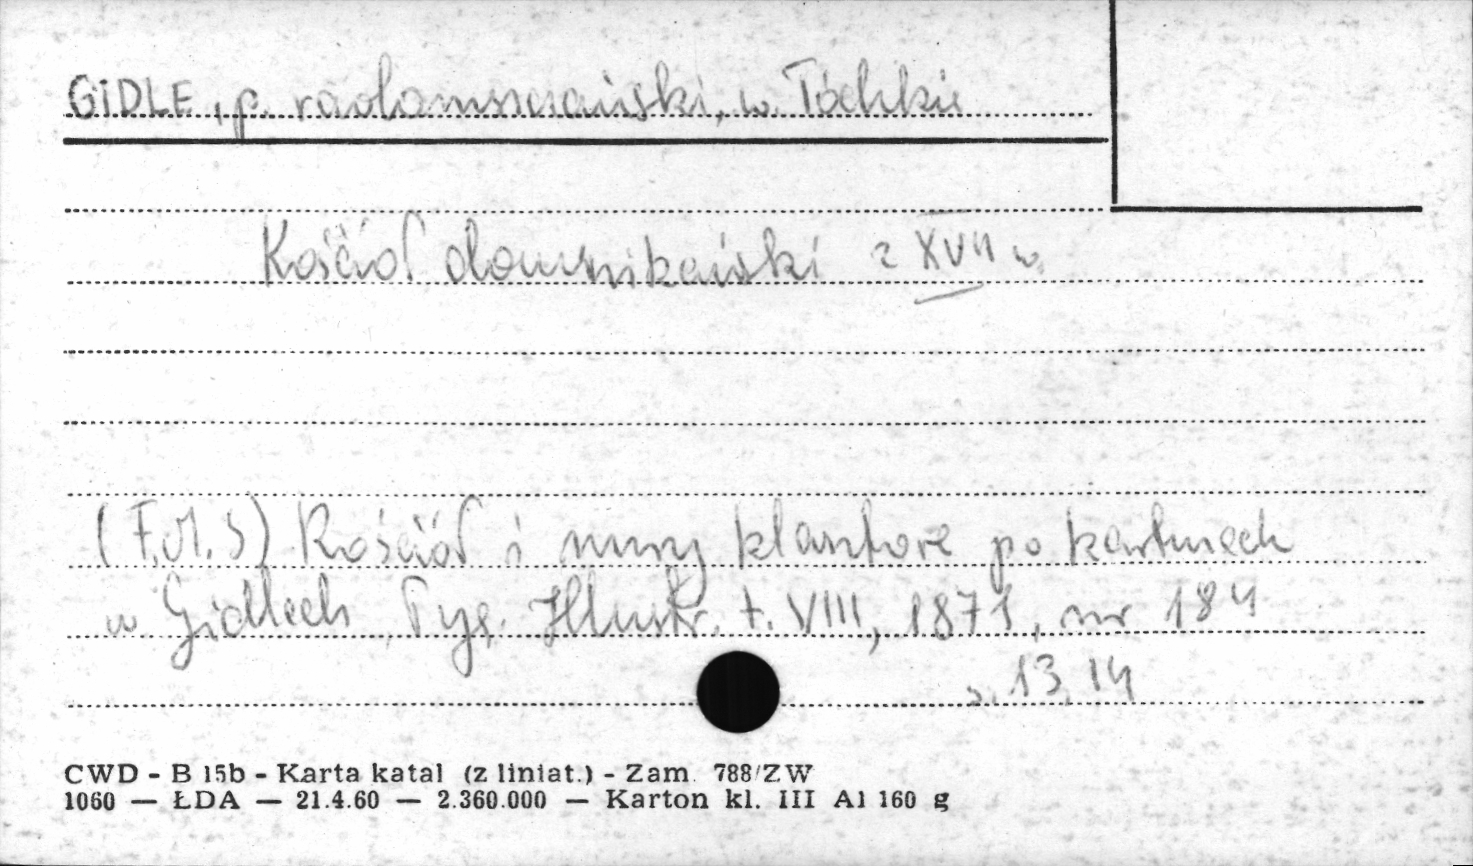 GIDLE, p. radomszczański, w. Łódzkie
Kościół dominikański z XVII w.
(F.M.S) Kościół i mury klasztorne po kartuzach
w Gidlach, Tyg. Illustr. t. VIII, 1871, nr 184
s. 13, 14
CWD - B 15b - Karta katal (z liniat.) - Zam. 788/ZW
1060 — ŁDA — 21.4.60 — 2.360.000 — Karton kl. III A1 160 g